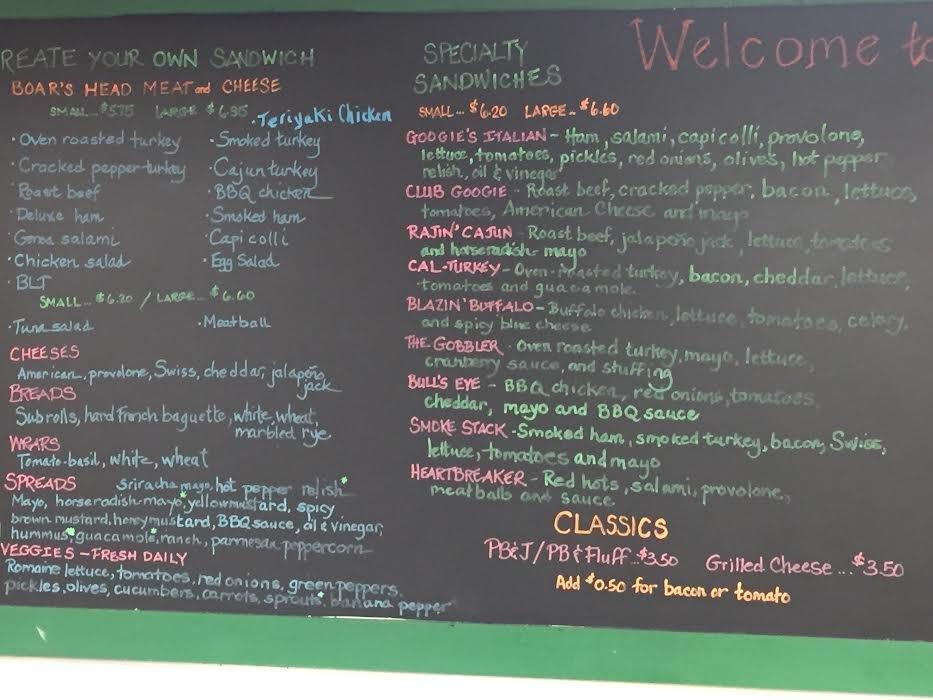 REATE YOUR OWN SANDWICH
BOAR'S HEAD MEAT and CHEESE
SMALL... $5.75 LARGE $6.35
· Teriyaki Chicken
· Oven roasted turkey
· Smoked turkey
· Cracked pepper turkey
· Cajun turkey
Roast beef
· BBQ chicken
· Deluxe ham
· Smoked ham
· Genoa salami
· Capicolli
· Chicken salad
· Egg Salad
· BLT
SMALL... $6.20 / LARGE... $6.60
· Tuna salad
· Meatball
CHEESES
American, provolone, Swiss, cheddar, jalapeño
jack
BREADS
Sub rolls, hard french baguette, white, wheat,
marbled rye
WRAPS
Tomato-basil, white, wheat
SPREADS sriracha mayo, hot pepper relish*
Mayo, horseradish-mayo*, yellow mustard, spicy
brown mustard, honey mustard, BBQ sauce, oil & vinegar,
hummus*, guacamole*, ranch, parmesan peppercorn
VEGGIES - FRESH DAILY
Romaine lettuce, tomatoes, red onions, green peppers,
pickles, olives, cucumbers, carrots, sprouts*, banana pepper
Welcome to
SPECIALTY
SANDWICHES
SMALL... $6.20 LARGE... $6.60
GOOGIE'S ITALIAN - Ham, salami, capicolli, provolone,
lettuce, tomatoes, pickles, red onions, olives, hot pepper
relish, oil & vinegar
CLUB GOOGIE - Roast beef, cracked pepper, bacon, lettuce,
tomatoes, American Cheese and mayo
RAJIN' CAJUN - Roast beef, jalapeño jack, lettuce, tomatoes
and horseradish-mayo
CAL-TURKEY - Oven-roasted turkey, bacon, cheddar, lettuce,
tomatoes and guacamole.
BLAZIN' BUFFALO - Buffalo chicken, lettuce, tomatoes, celery,
and spicy blue cheese
THE GOBBLER - Oven roasted turkey, mayo, lettuce,
cranberry sauce, and stuffing
BULL'S EYE - BBQ chicken, red onions, tomatoes,
cheddar, mayo and BBQ sauce
SMOKE STACK - Smoked ham, smoked turkey, bacon, Swiss,
lettuce, tomatoes and mayo
HEARTBREAKER - Red hots, salami, provolone,
meatballs and sauce
CLASSICS
PB&J/PB & Fluff... $3.50 Grilled Cheese... $3.50
Add $0.50 for bacon or tomato